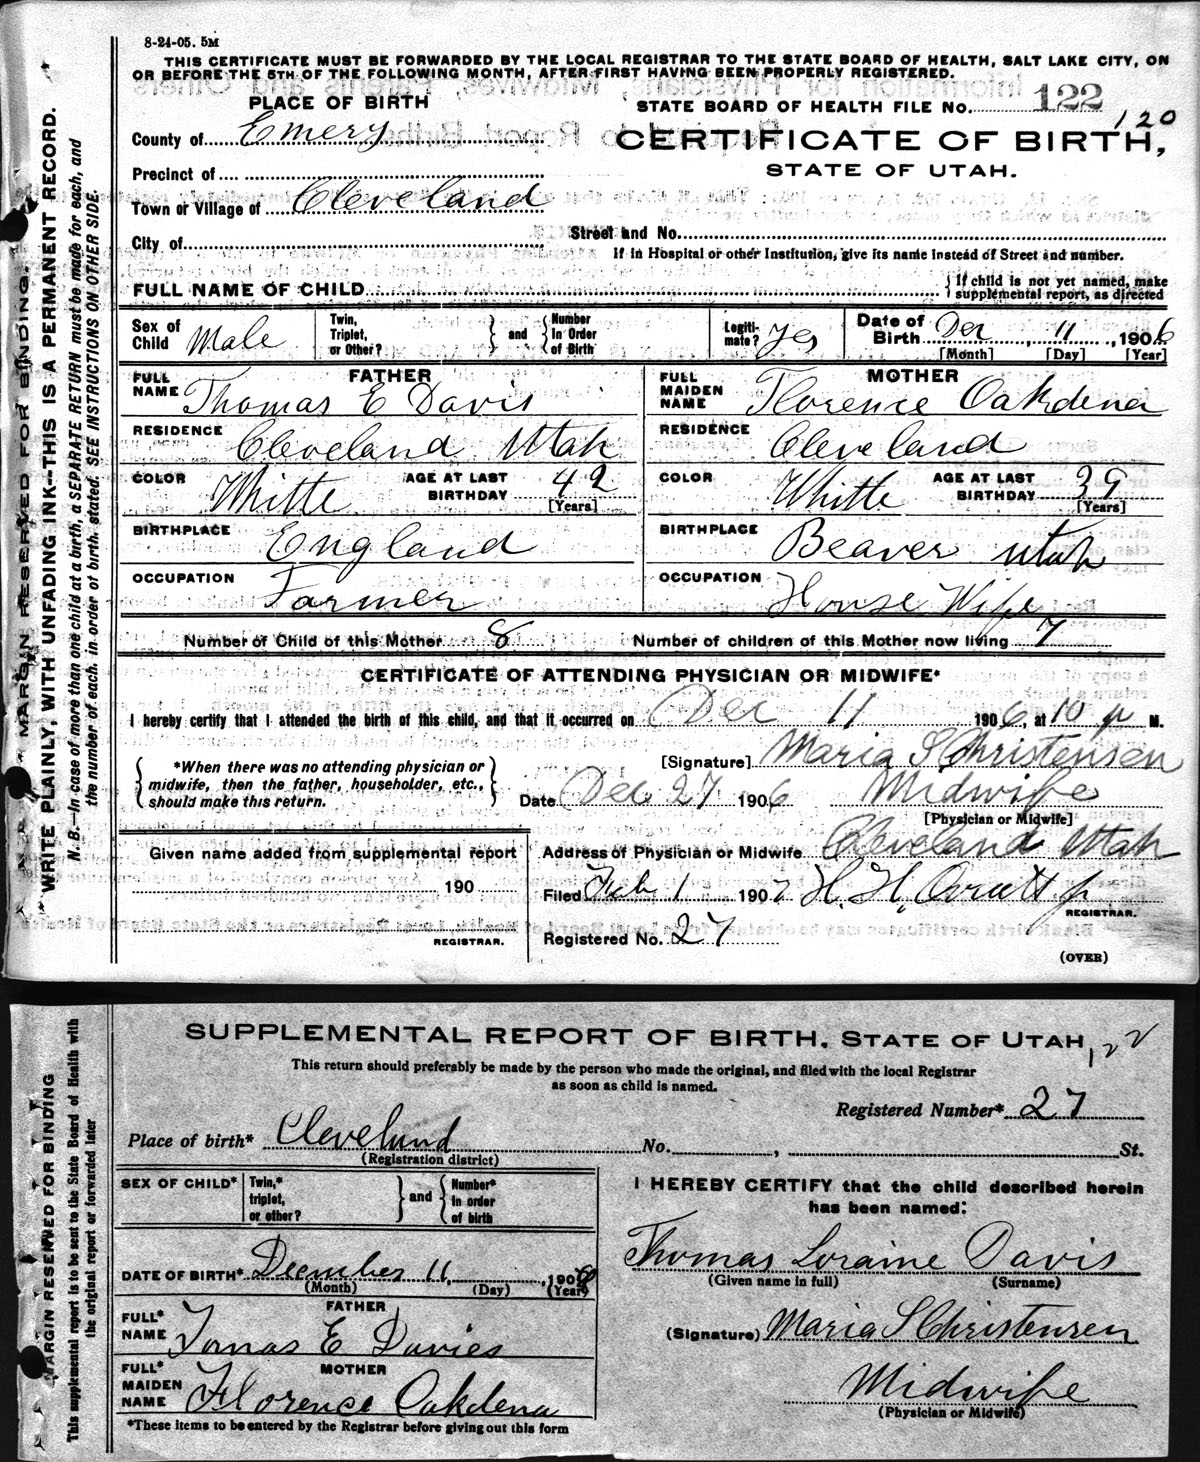 8-24-05. 5M
THIS CERTIFICATE MUST BE FORWARDED BY THE LOCAL REGISTRAR TO THE STATE BOARD OF HEALTH, SALT LAKE CITY, ON
OR BEFORE THE 5TH OF THE FOLLOWING MONTH, AFTER FIRST HAVING BEEN PROPERLY REGISTERED.
PLACE OF BIRTH
STATE BOARD OF HEALTH FILE NO. 122
120
County of Emery
CERTIFICATE OF BIRTH,
STATE OF UTAH.
Precinct of
Town or Village of Cleveland
City of
Street and No.
If in Hospital or other Institution, give its name instead of Street and number.
FULL NAME OF CHILD
{ If child is not yet named, make
supplemental report, as directed
Sex of Child Male
Twin, Triplet, or Other? } and { Number In Order of Birth
Legiti-mate? Yes
Date of Birth Dec, 11, 1906
[Month] [Day] [Year]
FATHER
FULL NAME Thomas E Davis
RESIDENCE Cleveland Utah
COLOR Whitte AGE AT LAST BIRTHDAY 42 [Years]
BIRTHPLACE England
OCCUPATION Farmer
MOTHER
FULL MAIDEN NAME Florence Oakdena
RESIDENCE Cleveland
COLOR Whitte AGE AT LAST BIRTHDAY 39 [Years]
BIRTHPLACE Beaver Utah
OCCUPATION House Wife
Number of Child of this Mother 8 Number of children of this Mother now living 7
CERTIFICATE OF ATTENDING PHYSICIAN OR MIDWIFE*
I hereby certify that I attended the birth of this child, and that it occurred on Dec 11 1906, at 10 p M.
{ *When there was no attending physician or
midwife, then the father, householder, etc.,
should make this return. }
[Signature] Maria S Christensen
Date Dec 27 1906 Midwife
[Physician or Midwife]
Given name added from supplemental report
190
REGISTRAR.
Address of Physician or Midwife Cleveland Utah
Filed Feb 1 1907 H. H. Oviatt jr
REGISTRAR.
Registered No. 27
(OVER)
MARGIN RESERVED FOR BINDING.
WRITE PLAINLY, WITH UNFADING INK--THIS IS A PERMANENT RECORD.
N. B.—In case of more than one child at a birth, a SEPARATE RETURN must be made for each, and
the number of each, in order of birth, stated. SEE INSTRUCTIONS ON OTHER SIDE.
SUPPLEMENTAL REPORT OF BIRTH, STATE OF UTAH
122
This return should preferably be made by the person who made the original, and filed with the local Registrar
as soon as child is named.
Registered Number* 27
Place of birth* Cleveland No. , St.
(Registration district)
SEX OF CHILD* Twin,* triplet, or other? } and { Number* in order of birth
DATE OF BIRTH* December 11, 1906
(Month) (Day) (Year)
FATHER
FULL* NAME Tomas E Davies
MOTHER
FULL* MAIDEN NAME Florence Oakdena
*These items to be entered by the Registrar before giving out this form
I HEREBY CERTIFY that the child described herein
has been named:
Thomas Loraine Davis
(Given name in full) (Surname)
(Signature) Maria S Christensen
Midwife
(Physician or Midwife)
MARGIN RESERVED FOR BINDING
This supplemental report is to be sent to the State Board of Health with
the original report or forwarded later